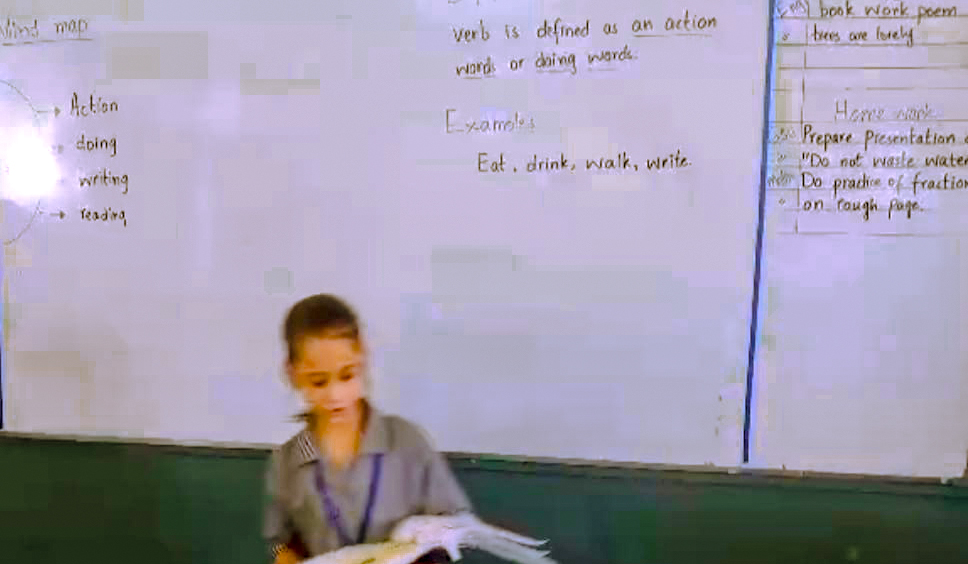 Mind map
Action
doing
writing
reading
verb is defined as an action
words or doing words.
Examples
Eat, drink, walk, write.
book work poem
trees are lovely
Home work
Prepare Presentation
"Do not waste water
Do practice of fraction
on rough page.